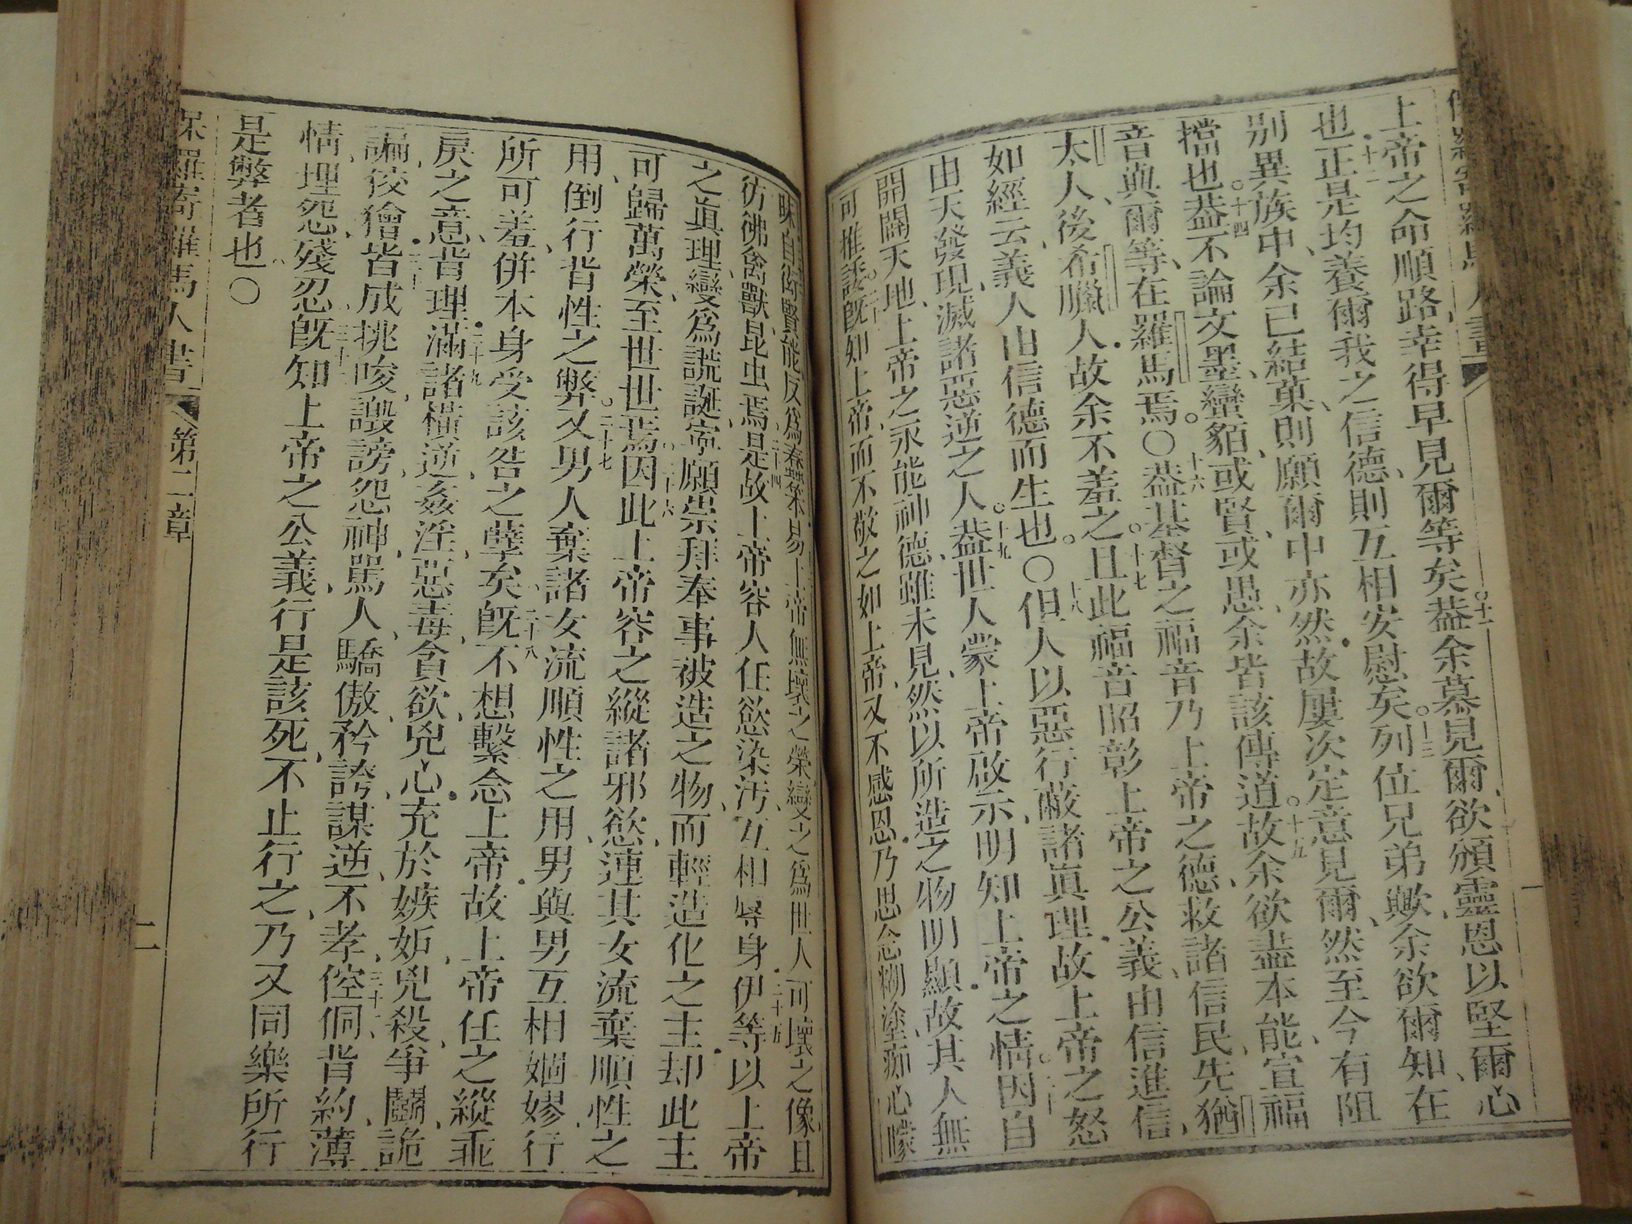 保羅寄羅馬人書
上帝之命順路幸得早見爾等矣十一葢余慕見爾欲頒靈恩以堅爾心
也十二正是均養爾我之信德則互相安慰矣十三列位兄弟歟余欲爾知在
別異族中余已結菓則願爾中亦然故屢次定意見爾然至今有阻
擋也十四葢不論文墨蠻貊或賢或愚余皆該傳道十五故余欲盡本能宣福
音與爾等在羅馬焉○十六葢基督之福音乃上帝之德救諸信民先猶
太人後希臘人故余不羞之十七且此福音昭彰上帝之公義由信進信
如經云義人由信德而生也○十八但人以惡行蔽諸眞理故上帝之怒
由天發現滅諸惡逆之人十九葢世人蒙上帝啟示明知上帝之情二十因自
開闢天地上帝之永能神德雖未見然以所造之物明顯故其人無
可推諉二十一旣知上帝而不敬之如上帝又不感恩乃思念糊塗痴心矇
昧自衒賢能反為蠢笨易上帝無壞之榮變之為世人可壞之像且
彷彿禽獸昆虫焉二十四是故上帝容人任慾染汚互相辱身二十五伊等以上帝
之眞理變為謊誕寧願崇拜奉事被造之物而輕造化之主却此主
可歸萬榮至世世焉二十六因此上帝容之縱諸邪慾連其女流棄順性之
用倒行背性之弊二十七又男人棄諸女流順性之用男與男互相婟嫪行
所可羞併本身受該咎之孽矣二十八旣不想繫念上帝故上帝任之縱乖
戾之意背理二十九滿諸橫逆姦淫惡毒貪欲兇心充於嫉妬兇殺爭鬭詭
譎三十狡獪皆成挑唆譭謗怨神罵人驕傲矜誇謀逆不孝三十一倥侗背約薄
情埋怨殘忍三十二旣知上帝之公義行是該死不止行之乃又同樂所行
是弊者也○
保羅寄羅馬人書 第二章 二